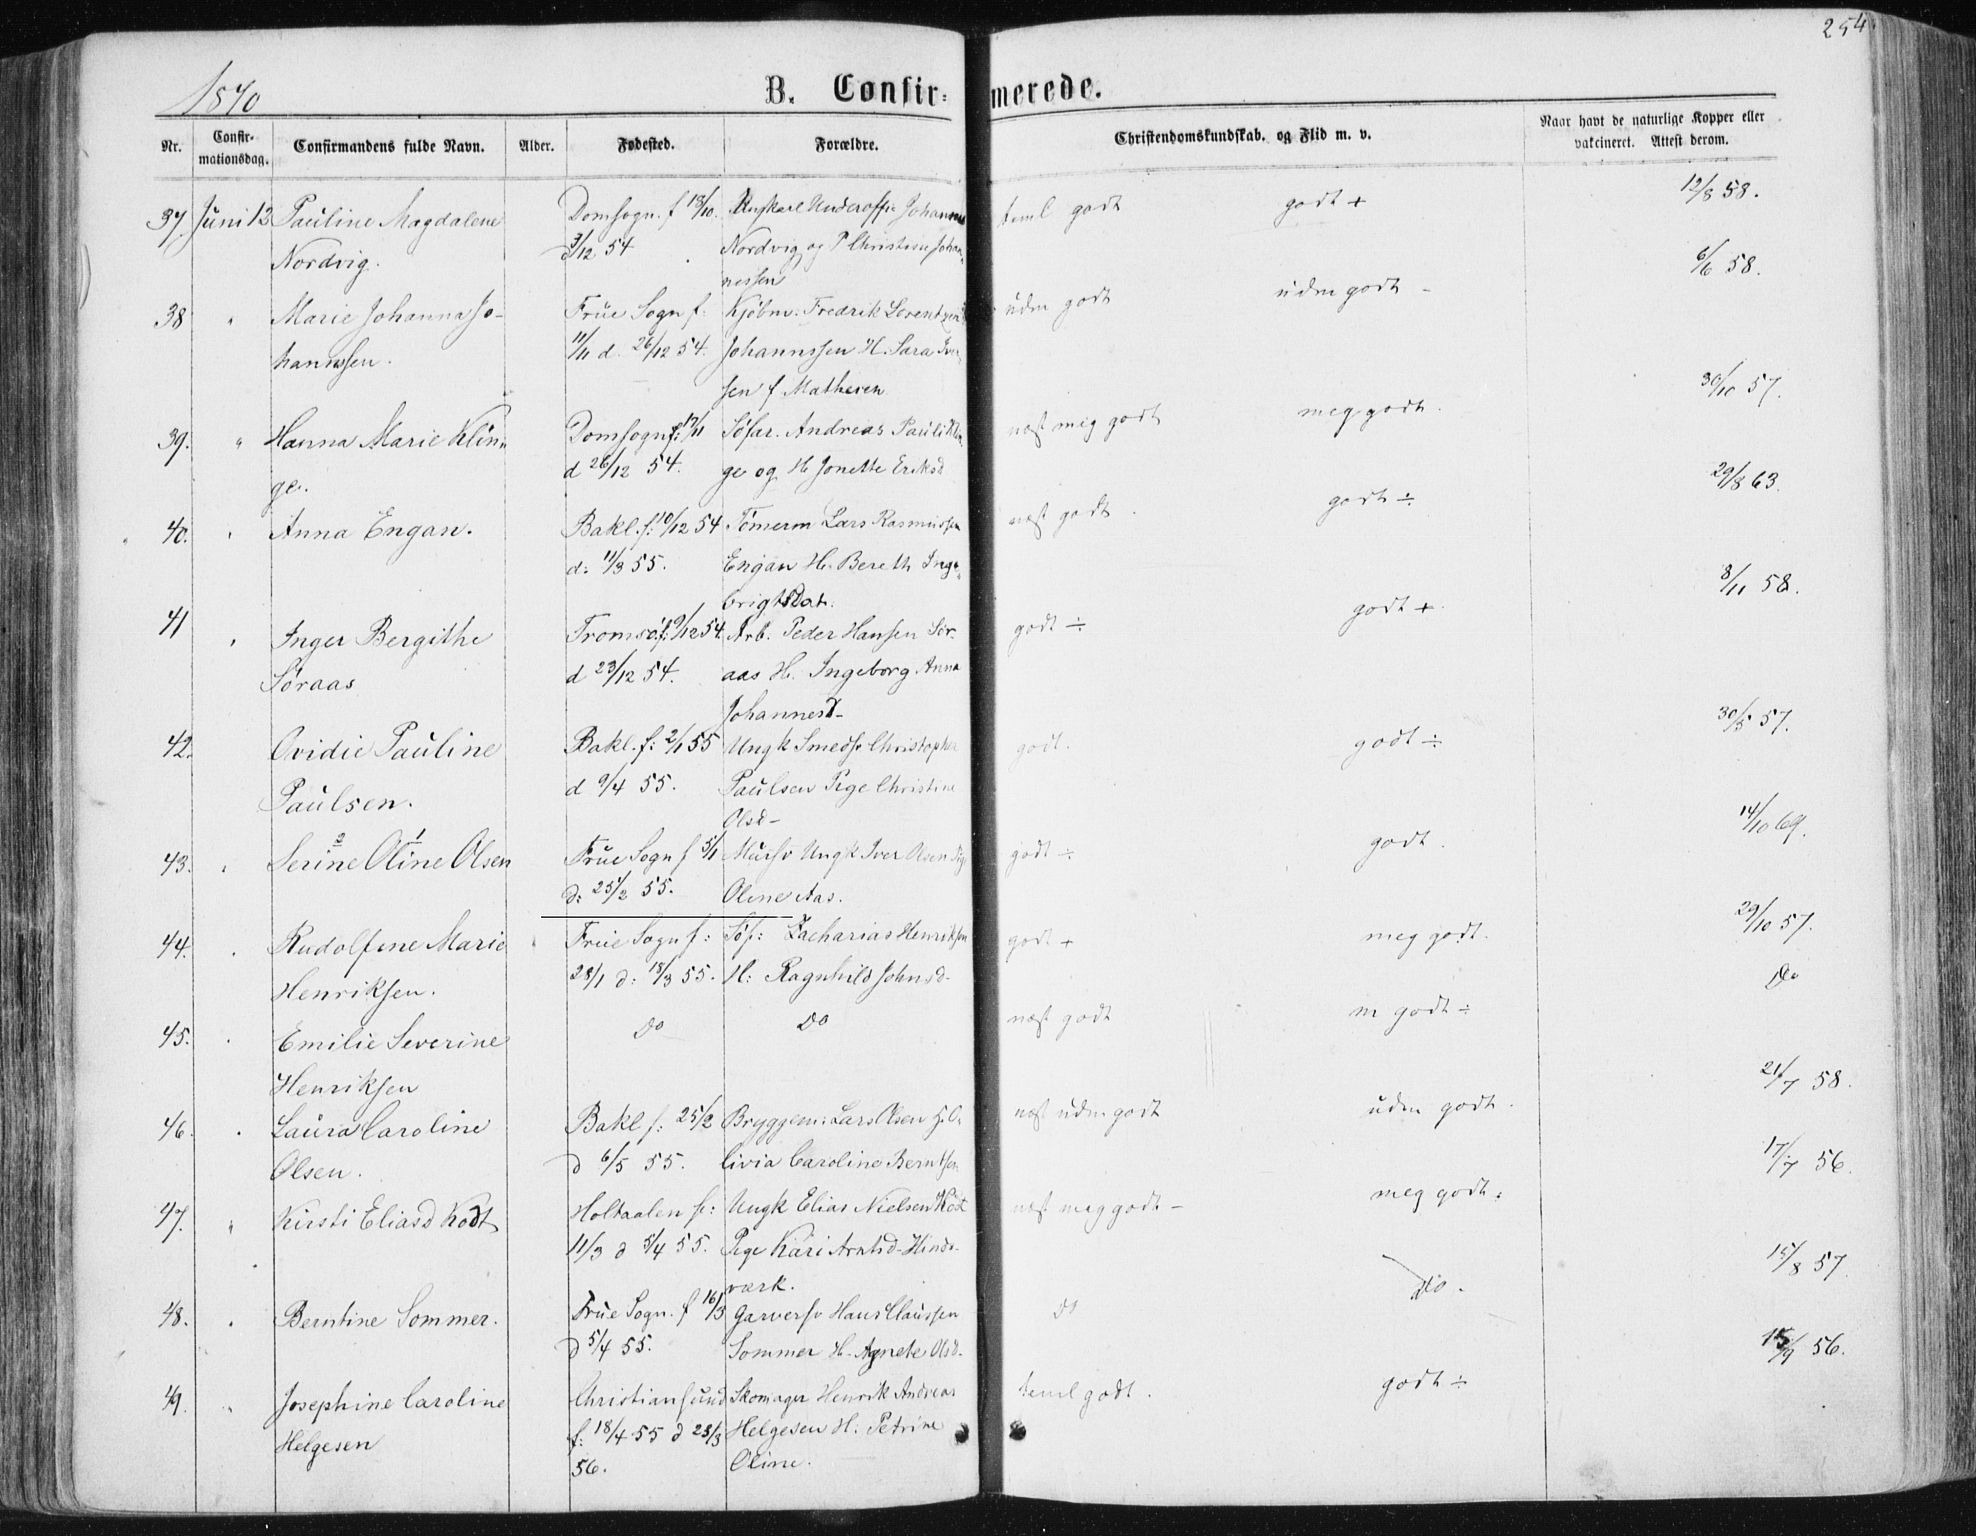 254
1870
B. Confir-merede.
Nr.
Confir-
mationsdag.
Confirmandens fulde Navn.
Alder.
Fødested.
Forældre.
Christendomskundskab. og Flid m. v.
Naar havt de naturlige Kopper eller
vakcineret. Attest derom.
37. Juni 12 Pauline Magdalene
Nordvig.
Domsogn. f 13/10.
3/12 54
Ungkarl Underoffr Johannes
Nordvig og P Christine Johan-
nessen
teml godt
godt +
12/8 58.
38 " Marie Johanna Jo-
hannssen.
Frue Sogn f:
11/11 d. 26/12 54.
Kjöbm: Fredrik Lorentzen
Johannssen H. Sara Iver-
sen f Mathesen
udm godt
udm godt -
6/6 58.
39. " Hanna Marie Klin-
ge.
Domsogn f: 17/11
d 26/12 54.
Söfar. Andreas Pauli Klin-
ge og H Jonette Eriksd
næst meg godt
meg godt.
30/10 57.
40. " Anna Engan.
Bakl. f: 10/12 54
d: 11/3 55.
Tömerm Lars Rasmussen
Engan H. Bereth Inge-
brigtsDat.
næst godt.
godt ÷
29/8 63.
41 " Inger Bergithe
Söraas
Tromsö f: 9/12 54.
d 23/12 54.
Arb. Peder Hansen Sör-
aas H. Ingeborg Anna
Johannesd-
godt ÷
godt +.
8/11 58.
42. Ovidie Pauline
Paulsen.
Bakl. f: 2/1 55
d 9/4 55.
Ungk Smedsv Christopher
Paulsen Pige Christine
Olsd-
godt.
godt ÷
30/5 57.
43. " Serine Oline Olsen
2 1
Frue Sogn f 5/1
d: 25/2 55.
Mursv Ungk Iver Olsen Pige
Oline Aas.
godt ÷
godt.
14/10 69.
44. " Rudolfine Marie
Henriksen.
Frue Sogn f:
28/1 d: 18/3 55.
Söf: Zacharias Henriksen
H: Ragnhild Johnsd-
godt +
meg godt.
29/10 57.
45. " Emilie Severine
Henriksen
Do
Do
næst godt
m godt ÷
Do
46. " Laura Caroline
Olsen.
Bakl f: 25/2
d 6/5 55.
Bryggem: Lars Olsen H: O-
livia Caroline Berntsen
næst udm godt
udm godt.
21/7 58.
47. " Kirsti Eliasd Kodt
Holtaalen f:
11/3 d 5/4 55.
Ungk Elias Nielsen Ködt
Pige Kari Arntsd- Hinds-
værk.
næst meg godt -
meg godt:
17/7 56.
48. " Berntine Sommer.
Frue Sogn. f 16/3
d 5/4 55.
Garversv Hans Claussen
Sommer H. Agnete Olsd-
do
do.
15/8 57.
49. " Josephine Caroline
Helgesen
Christiansund
f: 18/4 55 d 23/3
56.
Skomager Henrik Andreas
Helgesen H. Petrine
Oline.
teml godt.
godt ÷
15/9 56.